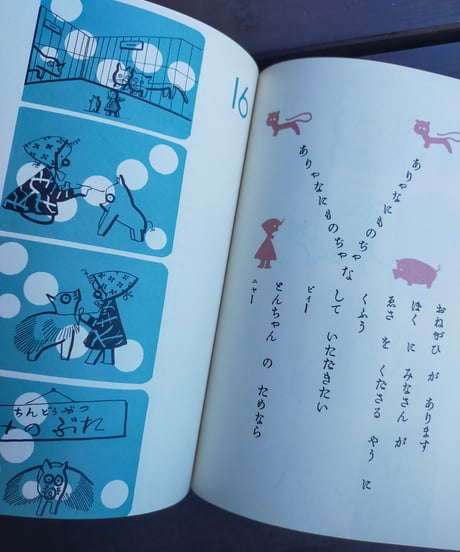 16
ありゃなにものぢゃ
ありゃなにものぢゃな
おねがひ が あります
ぼく に みなさん が
ゑさ を くださる やう に
くふう
して いただきたい
ピィー
とんちゃん の ためなら
ニャー
ちんどうぶつ